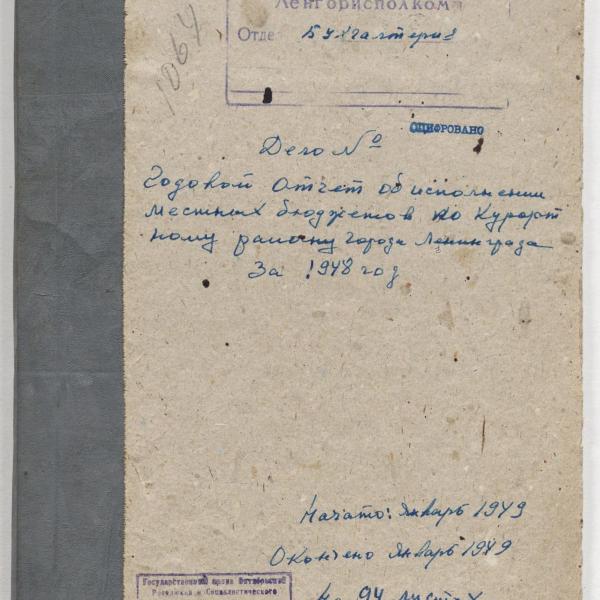 Ленгорисполком
Отде Бухгалтерия
1064
ОЦИФРОВАНО
Дело №
Годовой отчет об исполнении
местных бюджетов по Курорт
ному району города Ленинграда
За 1948 год
Начато: январь 1949
Окончено январь 1949
На 94 листах
Государственный архив Октябрьской
Революции и Социалистического